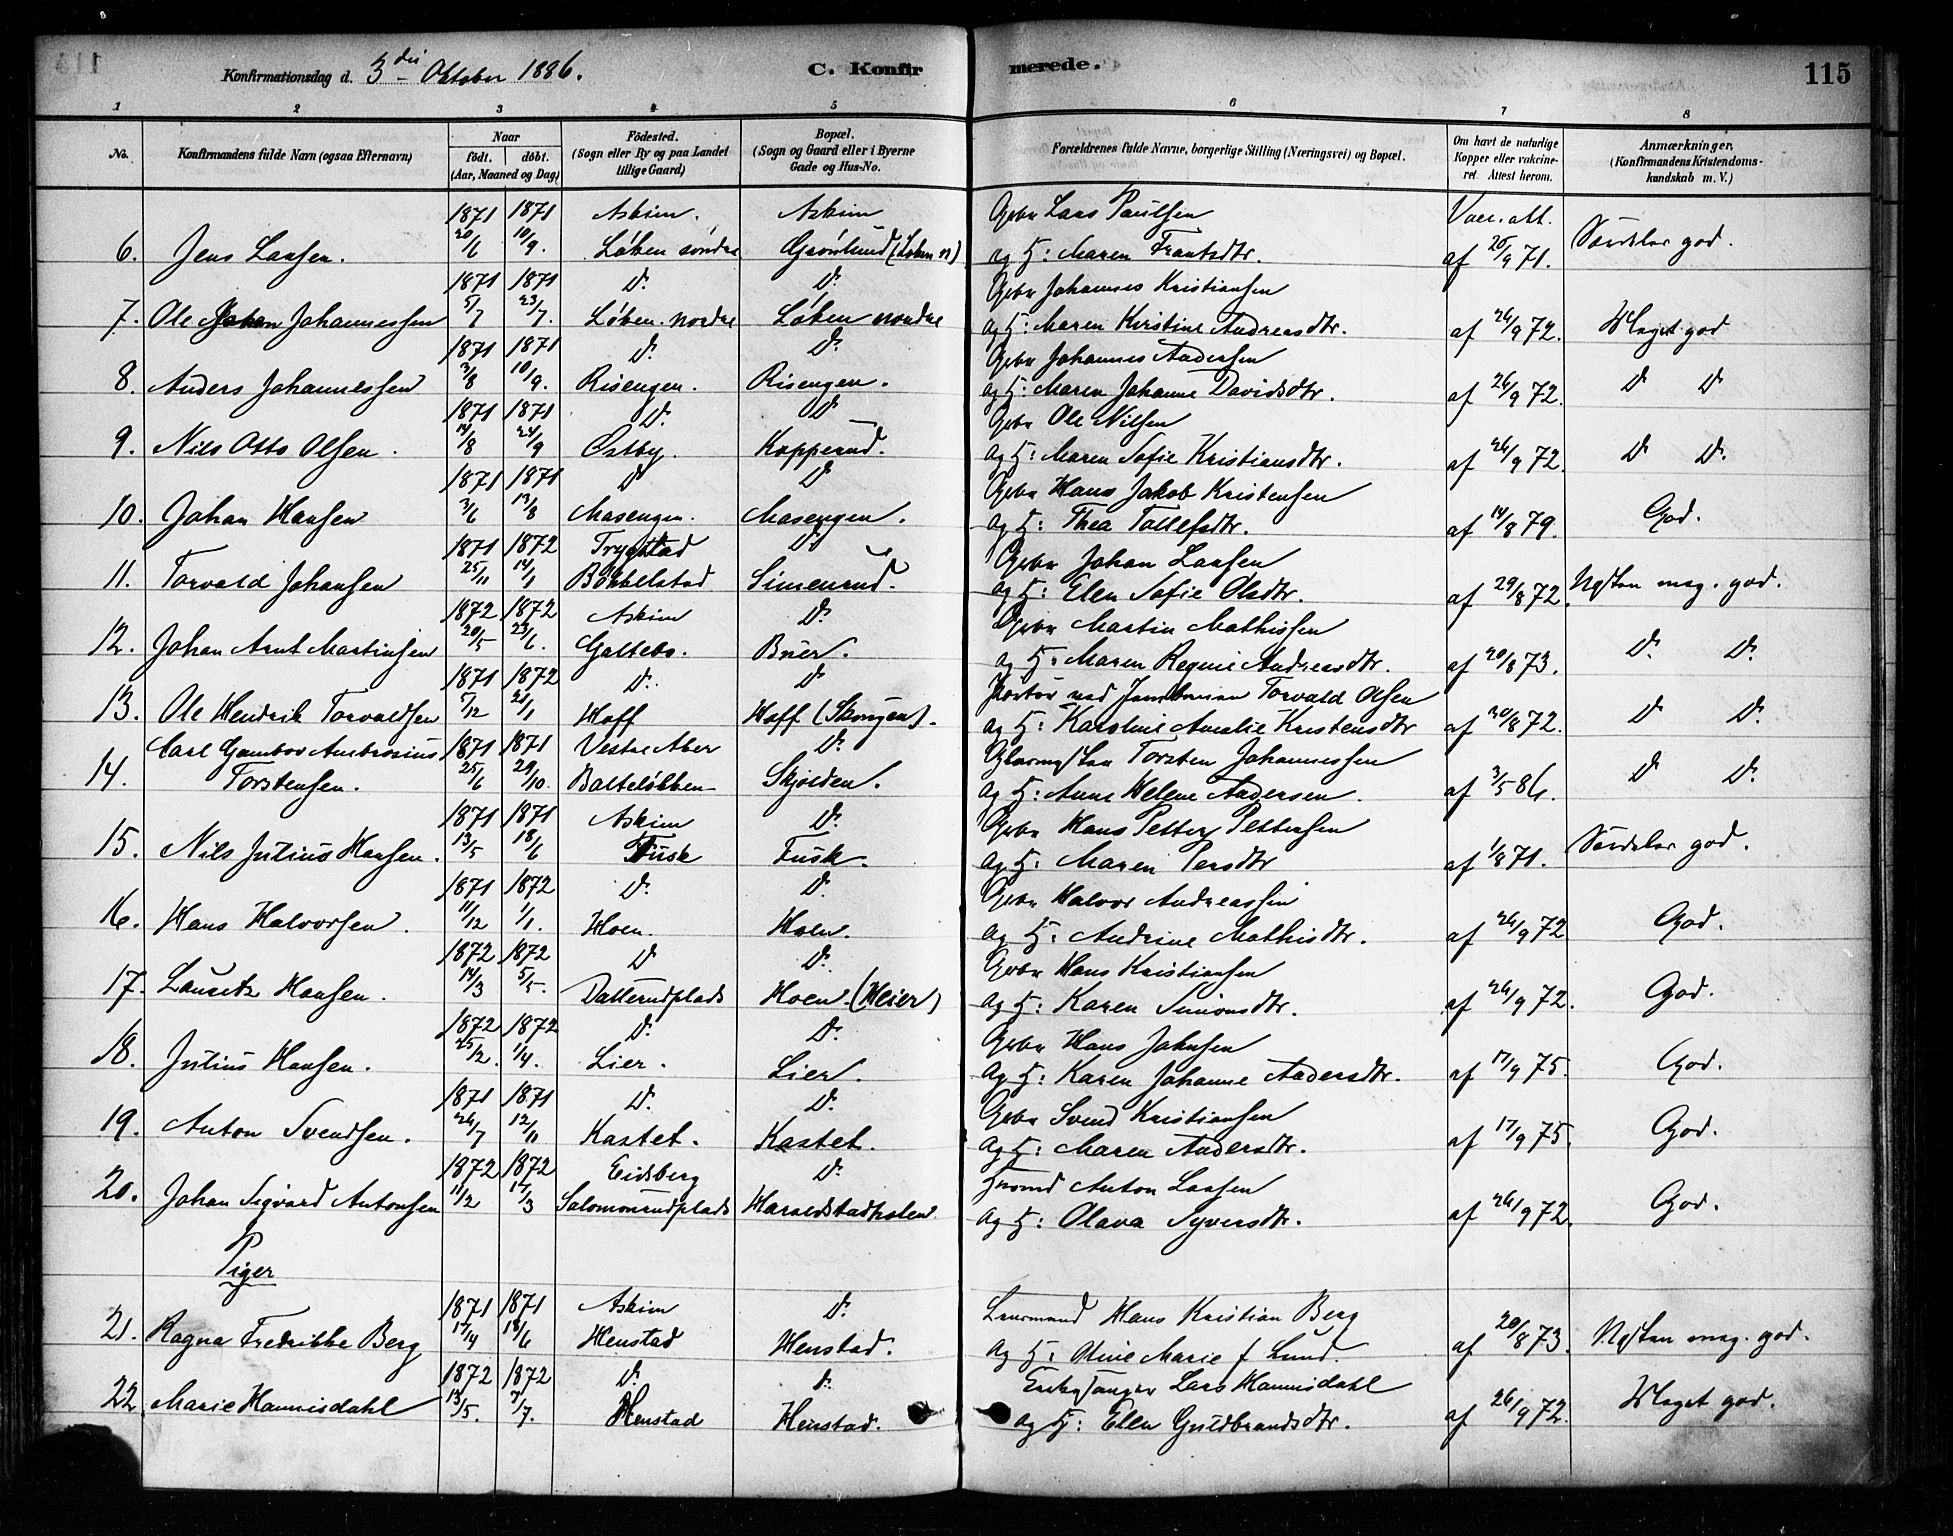 Konfirmationsdag d. 3die Oktober 1886.
C. Konfirmerede.
115
1 2 3 4 5 6 7 8
No.
Konfirmandens fulde Navn (ogsaa Efternavn)
Naar
födt. döbt.
(Aar, Maaned og Dag)
Födested.
(Sogn eller By og paa Landet
tillige Gaard)
Bopæl.
(Sogn og Gaard eller i Byerne
Gade og Hus-No.
Forældrenes fulde Navne, borgerlige Stilling (Næringsvei) og Bopæl.
Om havt de naturlige
Kopper eller vakcine-
ret. Attest herom.
Anmærkninger.
(Konfirmandens Kristendoms-
kundskab m. V.)
1871 1871 Askim. Askim Gbr Lars Paulsen Vacc. att.
6. Jens Larsen. 20/6 10/9. Løken søndre Grönlund (Løken n) og H: Maren Frantsdtr. af 25/9 71. Særdeles god.
1871 1871 Do. Do. Gbr Johannes Kristiansen
7. Ole Johan Johannessen 5/7 23/7. Løken nordre Løken nordre og H: Maren Kirstine Andreasdtr. af 26/9 72. Meget god
1871 1871 Do. Do. Gbr Johannes Andersen
8. Anders Johannessen 3/8 10/9. Risengen. Risengen. og H: Maren Johanne Davidsdtr. af 26/9 72. Do Do
1871 1871 Do. Do Gbr Ole Nilsen
9. Nils Otto Olsen. 14/8 24/9 Østby. Kopperud. og H: Maren Sofie Kristiansdtr. af 26/9 72. Do Do.
1871 1871 Do Do Gbr Hans Jakob Kristensen
10. Johan Hansen 3/6 13/8 Masengen. Masengen. og H: Thea Tollefsdtr. af 14/8 79. God.
1871 1872 Trygstad Do. Gbr Johan Larsen
11. Torvald Johansen 25/11 14/1 Bøkkelstad Simenrud. og H: Elen Sofie Olsdtr. af 29/8 72. Næsten meg. god.
1872 1872 Askim Do. Gbr Martin Mathissen
12. Johan Arnt Martinsen 20/5 23/6. Galtebo. Brer. og H: Maren Regine Andreasdtr. af 20/8 73. Do. Do.
1871 1872 Do. Do Portør ved Jernbanen Torvald Olsen
13. Ole Hendrik Torvaldsen 5/12 21/1 Hoff Hoff (Skougen). og H: Karoline Amalie Kristensdtr af 30/8 72. Do Do.
Carl Gambov Ambrosius 1871 1871 Vestre Aker Do. Glarmester Torsten Johannessen
14. Torstensen. 25/6 29/10. Balteløkken Skjolden. og H: Anne Helene Andersen. af 3/5 86. Do Do.
1871 1871 Askim Do. Gbr Hans Petter Pettersen
15. Nils Julius Hansen. 13/5 18/6 Fusk Fusk. og H: Maren Persdtr af 1/8 71. Særdeles god.
1871 1872 Do. Do. Gbr Halvor Andreassen
16. Hans Halvorsen. 11/12 1/1. Hoen. Hoen. og H: Andrine Mathisdtr. af 26/9 72 God.
1872 1872 Do Do. Gbr Hans Kristiansen
17. Lauritz Hansen. 14/3 5/5. Dallerudplads Hoen (Heier) og H: Karen Simonsdtr. af 26/9 72. God.
1872 1872 Do. Do. Gbr Hans Johnsen
18. Julius Hansen. 25/2. 1/4. Lier. Lier. og H: Karen Johanne Andersdtr. af 17/9 75. God.
1871 1871 Do. Do. Gbr Svend Kristiansen
19. Anton Svendsen. 26/7 12/11 Kastet. Kastet. og H: Maren Andersdtr. af 17/9 75. God.
1872 1872 Eidsberg Do. Husmd Anton Larsen
20. Johan Sigvard Antonsen 11/2 17/3 Salomonrudplads Haraldstadholen. og H: Olava Syversdtr. af 26/9 72. God.
Piger
1871 1871 Askim Do. Lensmand Hans Kristian Berg
21. Ragna Fredrikke Berg 17/4 18/6 Henstad Henstad. og H: Oline Marie f Lund. af 20/8 73. Næsten meg. god.
1872 1872 Do. Do. Kirkesanger Lars Hannisdahl
22. Marie Hannisdahl 13/5. 7/7. Henstad Henstad. og H: Ellen Guldbrandsdtr. af 26/9 72. Meget god.